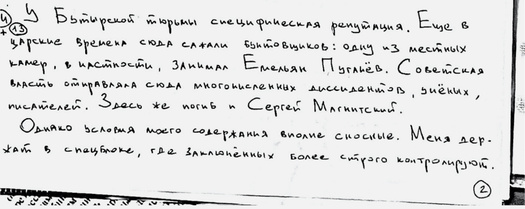 У Бутырской тюрьмы специфическая репутация. Еще в
царские времена сюда сажали бунтовщиков: одну из местных
камер, в частности, занимал Емельян Пугачёв. Советская
власть отправляла сюда многочисленных диссидентов, учёных,
писателей. Здесь же погиб и Сергей Магнитский.
Однако условия моего содержания вполне сносные. Меня дер-
жат в спецблоке, где заключённых более строго контролируют.
2